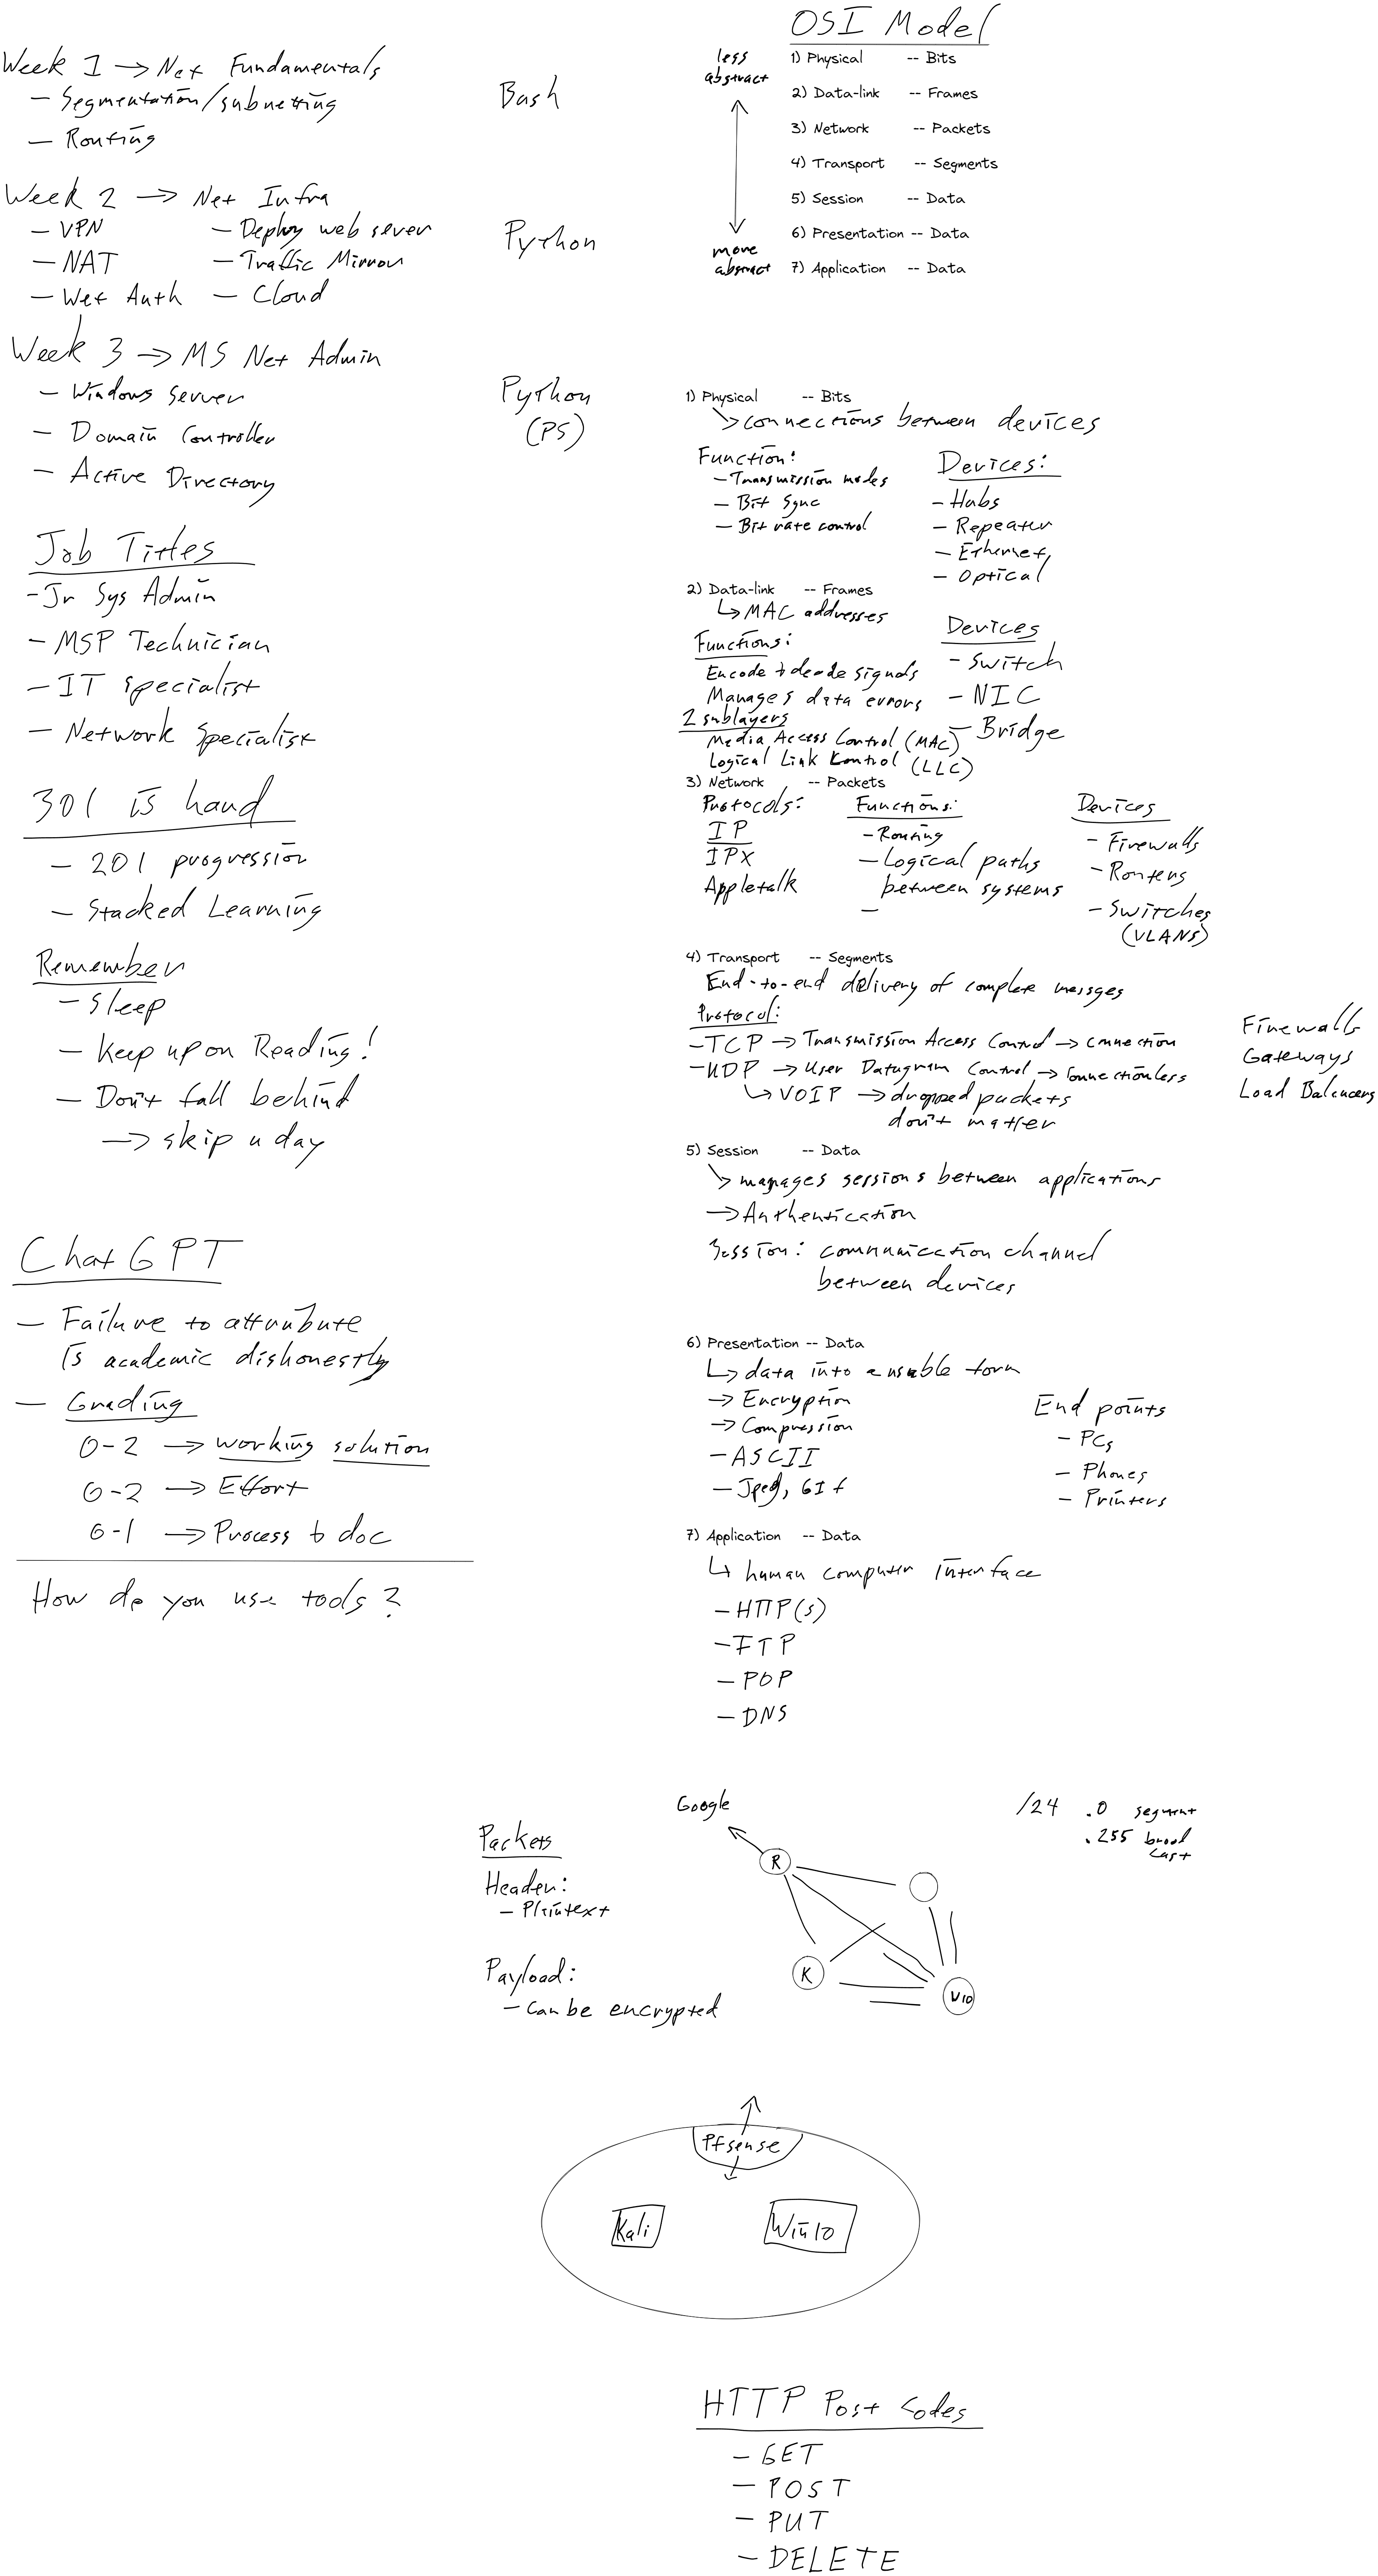 Week 1 → Net Fundamentals
- Segmentation/subnetting
- Routing
Bash
Week 2 → Net Infra
- VPN
- NAT
- Wet Auth
- Deploy web sever
- Traffic Mirror
- Cloud
Python
Week 3 → MS Net Admin
- Windows Server
- Domain Controller
- Active Directory
Python
(PS)
Job Titles
- Jr Sys Admin
- MSP Technician
- IT specialist
- Network Specialist
301 is hard
- 201 progression
- Stacked Learning
Remember
- Sleep
- Keep up on Reading!
- Don't fall behind
→ skip a day
ChatGPT
- Failure to attribute
is academic dishonestly
- Grading
0-2 → working solution
0-2 → Effort
0-1 → Process to doc
How do you use tools?
OSI Model
less
abstract
more
abstract
1) Physical -- Bits
2) Data-link -- Frames
3) Network -- Packets
4) Transport -- Segments
5) Session -- Data
6) Presentation -- Data
7) Application -- Data
1) Physical -- Bits
↳ connections between devices
Function:
- Transmission modes
- Bit Sync
- Bit rate control
Devices:
- Hubs
- Repeater
- Ethernet,
- Optical
2) Data-link -- Frames
↳ MAC addresses
Functions:
Encode + decode signals
Manages data errors
2 sublayers
Media Access Control (MAC)
Logical Link Control (LLC)
Devices
- Switch
- NIC
- Bridge
3) Network -- Packets
Protocols:
IP
IPX
Appletalk
Functions:
- Routing
- Logical paths
between systems
-
Devices
- Firewalls
- Routers
- Switches
(VLANS)
4) Transport -- Segments
End-to-end delivery of complete messges
Protocol:
- TCP → Transmission Access Control → connection
- UDP → User Datagram Control → connectionless
↳ VOIP → dropped packets
don't matter
Firewalls
Gateways
Load Balancers
5) Session -- Data
↳ manages sessions between applications
→ Authentication
Session: communication channel
between devices
6) Presentation -- Data
↳ data into a usable form
→ Encryption
→ Compression
- ASCII
- Jpeg, GIf
End points
- PCs
- Phones
- Printers
7) Application -- Data
↳ human computer interface
- HTTP(s)
- FTP
- POP
- DNS
Packets
Header:
- Plaintext
Payload:
- Can be encrypted
Google
R
K
W10
/24 .0 segment
.255 broad
cast
Pfsense
Kali
Win10
HTTP Post Codes
- GET
- POST
- PUT
- DELETE